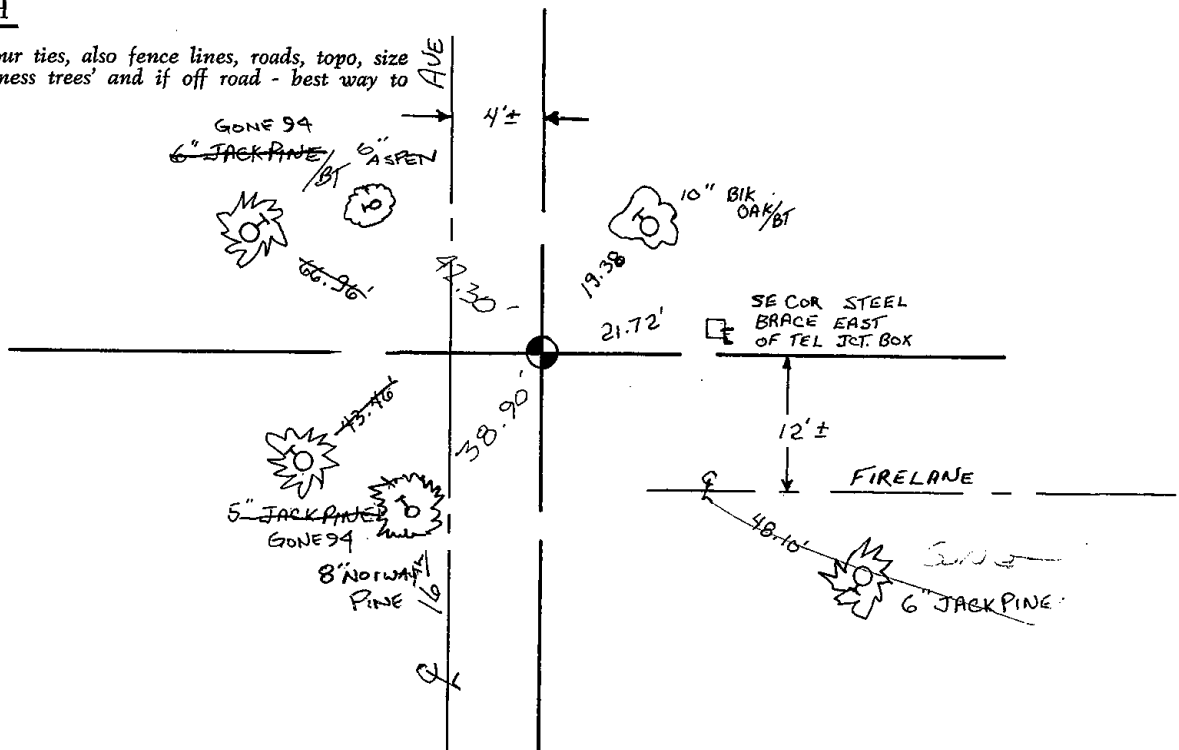 our ties, also fence lines, roads, topo, size
ness trees' and if off road - best way to
AVE
4'±
GONE 94
6" JACK PINE/BT
6" ASPEN
10" BlK
OAK/BT
66.96'
42.30
19.38
21.72'
SE COR STEEL
BRACE EAST
OF TEL JCT. BOX
43.46'
38.90'
12'±
FIRELANE
℄
48.10'
5" JACK PINE
GONE 94
8" NORWAY
PINE
16TH
6" JACK PINE
℄